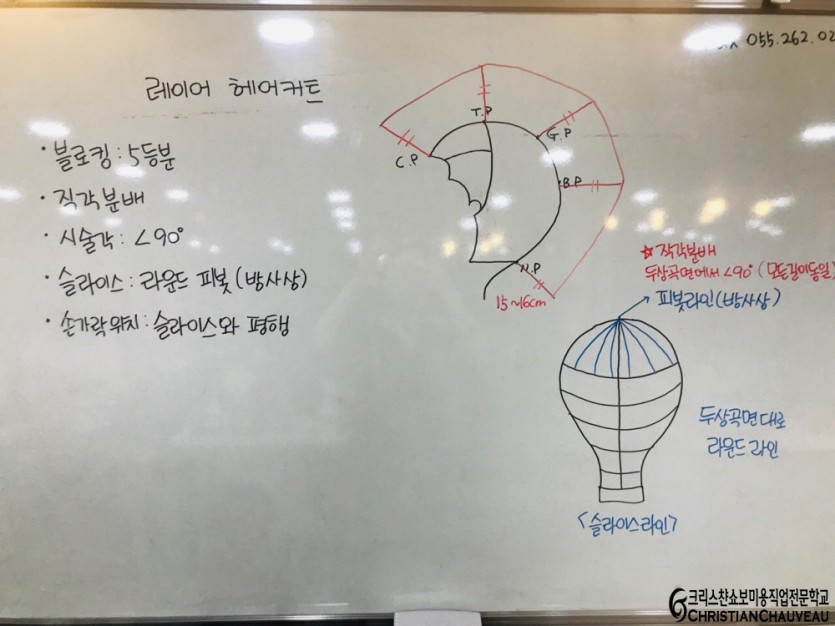 055.262.02
레이어 헤어커트
· 블로킹 : 5등분
· 직각분배
· 시술각 : <90°
· 슬라이스 : 라운드 피봇 (방사상)
· 손가락위치 : 슬라이스와 평행
T.P
G.P
C.P
B.P
N.P
15~16cm
☆ 직각분배
두상곡면에서 <90° (모든길이동일)
피봇라인(방사상)
두상곡면대로
라운드 라인
<슬라이스라인>
크리스챤쇼보미용직업전문학교
CHRISTIANCHAUVEAU